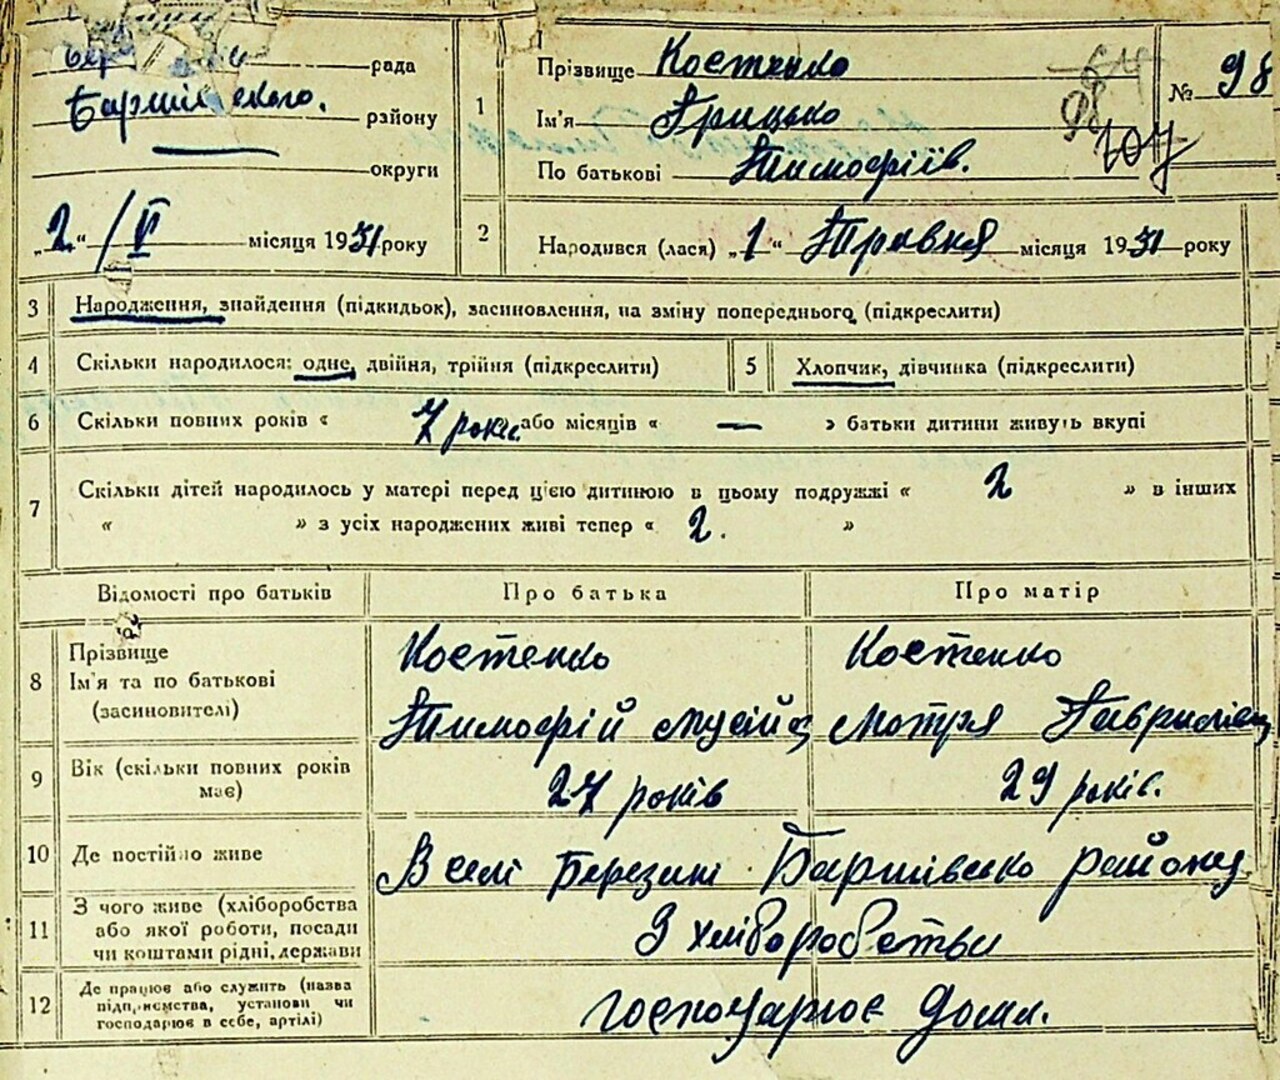 рада
Баришівського. району
округи
„2.“ / V місяця 1931 року
1 Прізвище Костенко
Ім'я Грицько
По батькові Тимофіїв.
№ 98
64
98
107
2 Народився (лася) „1“ Травня місяця 1931 року
3 Народження, знайдення (підкидьок), засиновлення, на зміну попереднього (підкреслити)
4 Скільки народилося: одне, двійня, трійня (підкреслити)
5 Хлопчик, дівчинка (підкреслити)
6 Скільки повних років « 7 років або місяців « — » батьки дитини живуть вкупі
7 Скільки дітей народилось у матері перед цією дитиною в цьому подружжі « 2 » в інших
« » з усіх народжених живі тепер « 2. »
Відомості про батьків Про батька Про матір
8 Прізвище
Ім'я та по батькові
(засиновителі)
Костенко
Тимофій Мусійов
Костенко
Мотря Гаврилівн
9 Вік (скільки повних років
має)
27 років
29 років.
10 Де постійно живе
В селі Березані Баришівсько району
11 З чого живе (хліборобства
або якої роботи, посади
чи коштами рідні, держави
З хліборобства
12 Де працює або служить (назва
підприємства, установи чи
господарює в себе, артілі)
господарює дома.